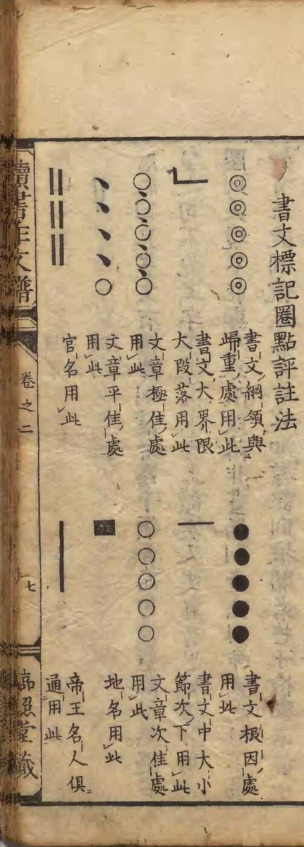 書文標記圈點評註法
◎◎◎◎◎
書文綱領與
歸重處用此
●●●●●
書文根因處
用此
書文大界限
大段落用此
書文中大小
節次下用此
文章極佳處
用此
○○○○○
文章次佳處
用此
文章平佳處
用此
地名用此
官名用此
帝王名人俱
通用此
讀書作文譜
卷之二
七
照堂藏